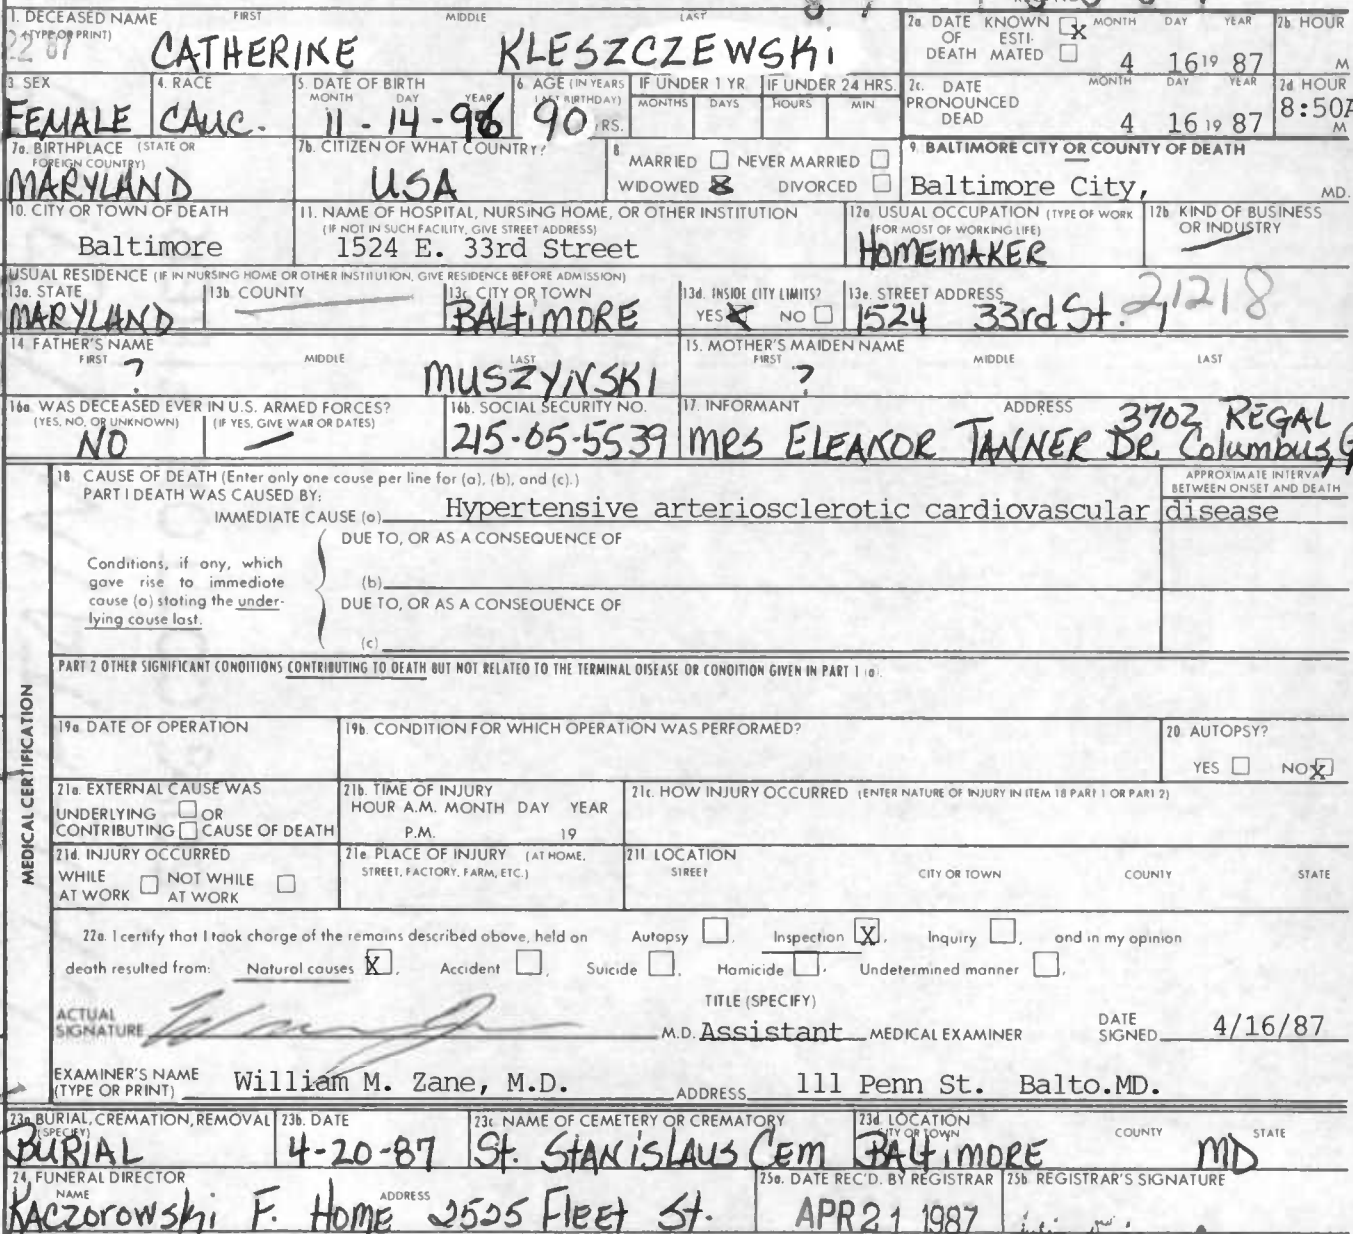 1. DECEASED NAME FIRST MIDDLE LAST
(TYPE OR PRINT)
CATHERINE KLESZCZEWSKI
2a. DATE KNOWN X MONTH DAY YEAR
OF ESTI-
DEATH MATED 4 16 19 87
2b. HOUR
M
3. SEX
FEMALE
4. RACE
CAUC.
5. DATE OF BIRTH
MONTH DAY YEAR
11 - 14 - 96
6. AGE (IN YEARS
LAST BIRTHDAY)
90 YRS.
IF UNDER 1 YR.
MONTHS DAYS
IF UNDER 24 HRS.
HOURS MIN
2c. DATE MONTH DAY YEAR
PRONOUNCED
DEAD 4 16 19 87
2d. HOUR
8:50A
M
7a. BIRTHPLACE (STATE OR
FOREIGN COUNTRY)
MARYLAND
7b. CITIZEN OF WHAT COUNTRY?
USA
8.
MARRIED NEVER MARRIED
WIDOWED X DIVORCED
9. BALTIMORE CITY OR COUNTY OF DEATH
Baltimore City, MD.
10. CITY OR TOWN OF DEATH
Baltimore
11. NAME OF HOSPITAL, NURSING HOME, OR OTHER INSTITUTION
(IF NOT IN SUCH FACILITY, GIVE STREET ADDRESS)
1524 E. 33rd Street
12a. USUAL OCCUPATION (TYPE OF WORK
FOR MOST OF WORKING LIFE)
HOMEMAKER
12b. KIND OF BUSINESS
OR INDUSTRY
USUAL RESIDENCE (IF IN NURSING HOME OR OTHER INSTITUTION, GIVE RESIDENCE BEFORE ADMISSION)
13a. STATE
MARYLAND
13b. COUNTY
13c. CITY OR TOWN
BALTIMORE
13d. INSIDE CITY LIMITS?
YES X NO
13e. STREET ADDRESS
1524 33rd St. 21218
14. FATHER'S NAME
FIRST MIDDLE LAST
? MUSZYNSKI
15. MOTHER'S MAIDEN NAME
FIRST MIDDLE LAST
?
16a. WAS DECEASED EVER IN U.S. ARMED FORCES?
(YES, NO, OR UNKNOWN) (IF YES, GIVE WAR OR DATES)
NO
16b. SOCIAL SECURITY NO.
215-05-5539
17. INFORMANT ADDRESS 3702 REGAL
MRS ELEANOR TANNER DR Columbus, G
MEDICAL CERTIFICATION
18. CAUSE OF DEATH (Enter only one cause per line for (a), (b), and (c).)
PART I DEATH WAS CAUSED BY:
APPROXIMATE INTERVA
BETWEEN ONSET AND DEATH
IMMEDIATE CAUSE (a) Hypertensive arteriosclerotic cardiovascular disease
DUE TO, OR AS A CONSEQUENCE OF
Conditions, if any, which
gave rise to immediate
cause (a) stating the under-
lying cause last.
(b)
DUE TO, OR AS A CONSEQUENCE OF
(c)
PART 2 OTHER SIGNIFICANT CONDITIONS CONTRIBUTING TO DEATH BUT NOT RELATED TO THE TERMINAL DISEASE OR CONDITION GIVEN IN PART 1 (a).
19a. DATE OF OPERATION
19b. CONDITION FOR WHICH OPERATION WAS PERFORMED?
20. AUTOPSY?
YES NO X
21a. EXTERNAL CAUSE WAS
UNDERLYING OR
CONTRIBUTING CAUSE OF DEATH
21b. TIME OF INJURY
HOUR A.M. MONTH DAY YEAR
P.M. 19
21c. HOW INJURY OCCURRED (ENTER NATURE OF INJURY IN ITEM 18 PART 1 OR PART 2)
21d. INJURY OCCURRED
WHILE NOT WHILE
AT WORK AT WORK
21e. PLACE OF INJURY (AT HOME,
STREET, FACTORY, FARM, ETC.)
21f. LOCATION
STREET CITY OR TOWN COUNTY STATE
22a. I certify that I took charge of the remains described above, held on Autopsy , Inspection X , Inquiry , and in my opinion
death resulted from: Natural causes X , Accident , Suicide , Homicide , Undetermined manner ,
TITLE (SPECIFY)
ACTUAL
SIGNATURE M.D. Assistant MEDICAL EXAMINER
DATE
SIGNED 4/16/87
EXAMINER'S NAME
(TYPE OR PRINT) William M. Zane, M.D. ADDRESS 111 Penn St. Balto.MD.
23a. BURIAL, CREMATION, REMOVAL
(SPECIFY)
BURIAL
23b. DATE
4-20-87
23c. NAME OF CEMETERY OR CREMATORY
St. STANISLAUS CEM
23d. LOCATION
CITY OR TOWN COUNTY STATE
BALTIMORE MD
24. FUNERAL DIRECTOR
NAME ADDRESS
KACZOROWSKI F. HOME 2525 FLEET St.
25a. DATE REC'D. BY REGISTRAR
APR 21 1987
25b. REGISTRAR'S SIGNATURE